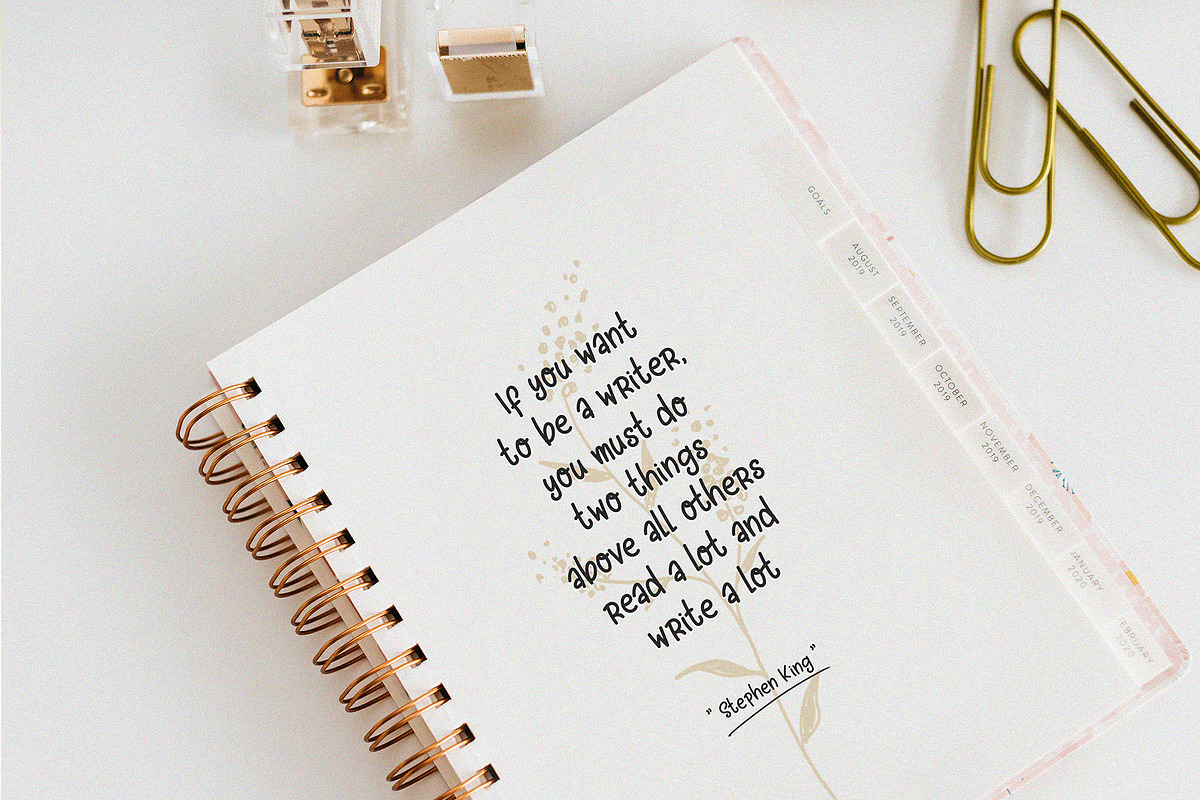 If you want
to be a writer,
you must do
two things
above all others
read a lot and
write a lot
" Stephen King "
GOALS
AUGUST
2019
SEPTEMBER
2019
OCTOBER
2019
NOVEMBER
2019
DECEMBER
2019
JANUARY
2020
FEBRUARY
2020